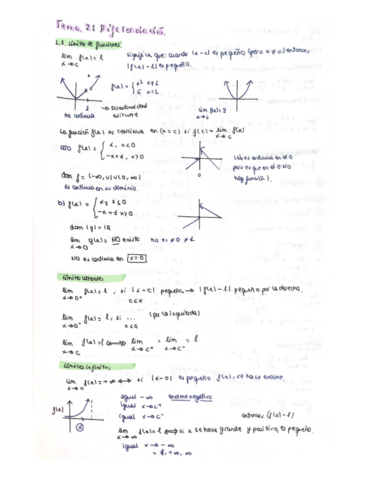 Tema 2: Diferenciación
2.1. Límite de funciones
lim f(x) = l significa que: cuando |x-c| es pequeño (pero x≠c) entonces
x→c |f(x)-l| es pequeño.
f(x) = { x² x≠2
5 x=2
2 → discontinuidad
no continua evitable
lim f(x) = 4
x→2
La función f(x) es continua en (x=c) si f(c) = lim f(x)
x→c
a) f(x) = { x, x<0
-x+1, x>0
(No es continua en el 0
pues es que en el 0 NO
hay función).
Dom f = (-∞, 0) ∪ (0, ∞)
es continua en su dominio.
b) g(x) = { x, x≤0
-x+1 x>0
dom (g) = ℝ
lim g(x) = NO existe
x→0
No es continua en x=0
Límites laterales
lim f(x) = l, si |x-c| pequeño → |f(x)-l| pequeño por la derecha.
x→c⁺ c<x
lim f(x) = l, si ... (por la izquierda)
lim f(x) = l ⟺ lim = lim = l
x→c x→c⁺ x→c⁻
Límites infinitos
lim f(x) = +∞ ⟺ si |x-0| es pequeño f(x), se hace enorme.
f(x) igual -∞ enorme negativo
igual x→c⁺
igual x→c⁻ entonces |f(x)-l|
lim f(x) = l ⟺ si x se hace grande y positivo, es pequeño.
x→∞
igual x→-∞
= l, +∞, ∞